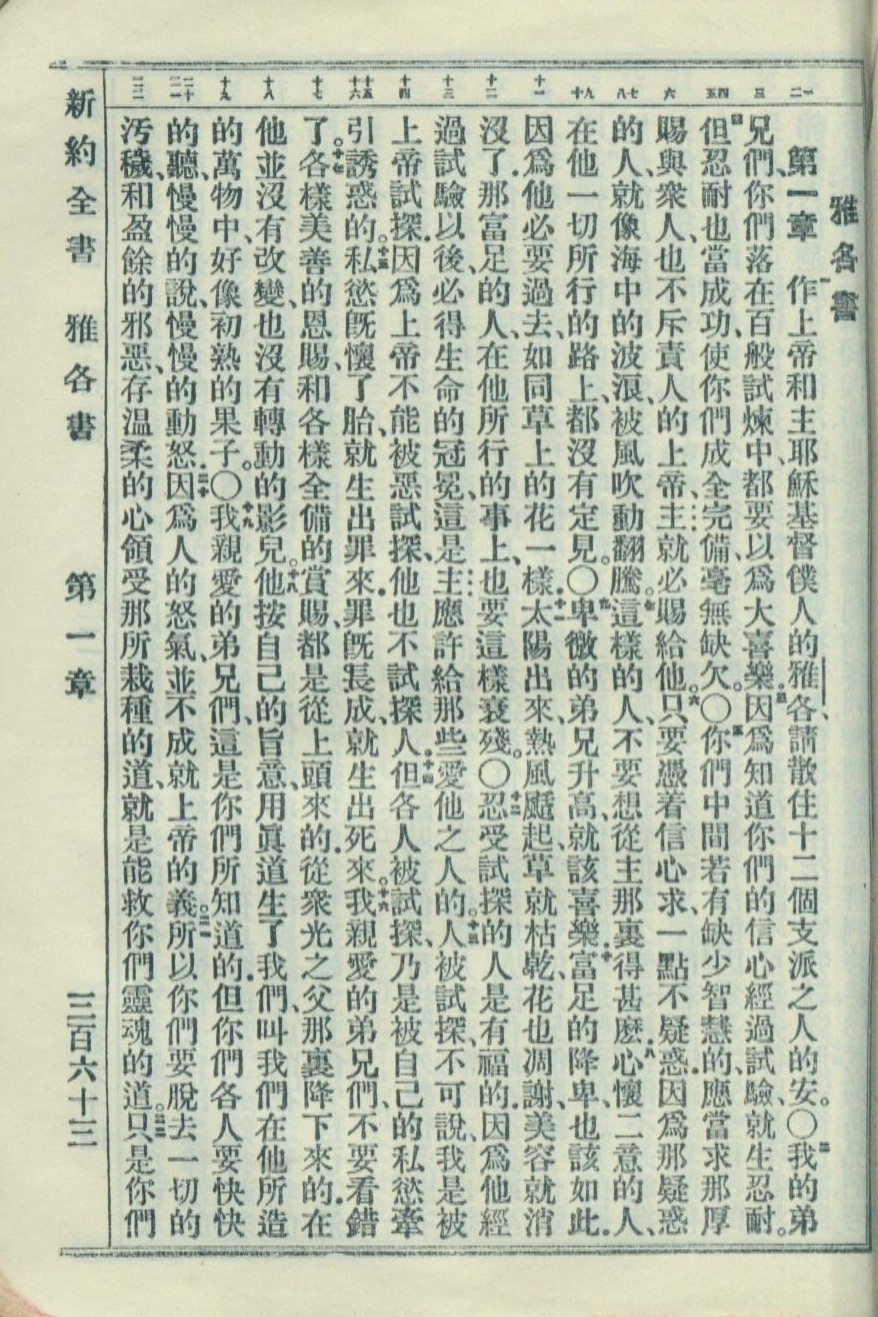 雅各書
第一章 一作上帝和主耶穌基督僕人的雅各、請散住十二個支派之人的安。〇二我的弟
兄們、你們落在百般試煉中、都要以爲大喜樂.三因爲知道你們的信心經過試驗、就生忍耐。
四但忍耐也當成功、使你們成全完備、毫無缺欠。〇五你們中間若有缺少智慧的、應當求那厚
賜與衆人、也不斥責人的上帝、主就必賜給他。六只要憑着信心求、一點不疑惑.因爲那疑惑
的人、就像海中的波浪、被風吹動翻騰。七這樣的人、不要想從主那裏得甚麽.八心懷二意的人、
在他一切所行的路上、都沒有定見。〇九卑微的弟兄升高、就該喜樂.十富足的降卑、也該如此.
因爲他必要過去、如同草上的花一樣.十一太陽出來、熱風颳起、草就枯乾、花也凋謝、美容就消
沒了.那富足的人、在他所行的事上、也要這樣衰殘。〇十二忍受試探的人是有福的.因爲他經
過試驗以後、必得生命的冠冕、這是主應許給那些愛他之人的。十三人被試探、不可說、我是被
上帝試探.因爲上帝不能被惡試探、他也不試探人.十四但各人被試探、乃是被自己的私慾牽
引誘惑的。十五私慾旣懷了胎、就生出罪來.罪旣長成、就生出死來。十六我親愛的弟兄們、不要看錯
了。十七各樣美善的恩賜、和各樣全備的賞賜、都是從上頭來的.從衆光之父那裏降下來的.在
他並沒有改變、也沒有轉動的影兒。十八他按自己的旨意、用眞道生了我們、叫我們在他所造
的萬物中、好像初熟的果子。〇十九我親愛的弟兄們、這是你們所知道的.但你們各人要快快
的聽、慢慢的說、慢慢的動怒.二十因爲人的怒氣、並不成就上帝的義。二一所以你們要脫去一切的
汚穢、和盈餘的邪惡、存溫柔的心領受那所栽種的道、就是能救你們靈魂的道。二二只是你們
新約全書 雅各書 第一章 三百六十三